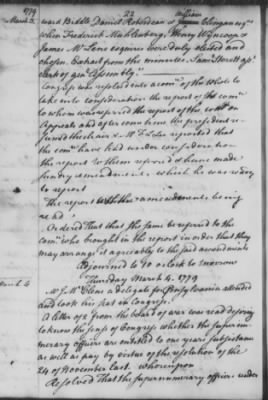 1779
March 3.
22
william
ward Biddle, Daniel Roberdeau or Clingan esqrs
when Frederick Muhlenberg, Henry Wynkoop &
James Mc Lene esquires were duly elected and
chosen. Extract from the minutes. Saml Sterett ast
clerk of genl Assembly."
Congress was resolved into a comee of the whole to
take into consideration the report of the comee
to whom was referred the report of the comee on
Appeals and after some time the president re-
sumed the chair & Mr F. L. Lee reported that
the comee have had under consideration
the report to them referred & have made
sundry amendments, which he was ready
to report
The report with the amendments being
read
Ordered That the same be referred to the
comee who brought in the report in order that they
may arrange it agreeably to the said amendments
Adjourned to 10 o'clock to morrow
Thursday March 4. 1779
March 4
Mr J. McClene a delegate for Pensylvania attended
and took his seat in Congress.
A letter of from the board of war was read desiring
to know the sense of Congress whether the supernu-
merary officers are entitled to one years subsistance
as well as pay by virtue of the resolution of the
24 of November last. whereupon
Resolved That the supernumerary officers under